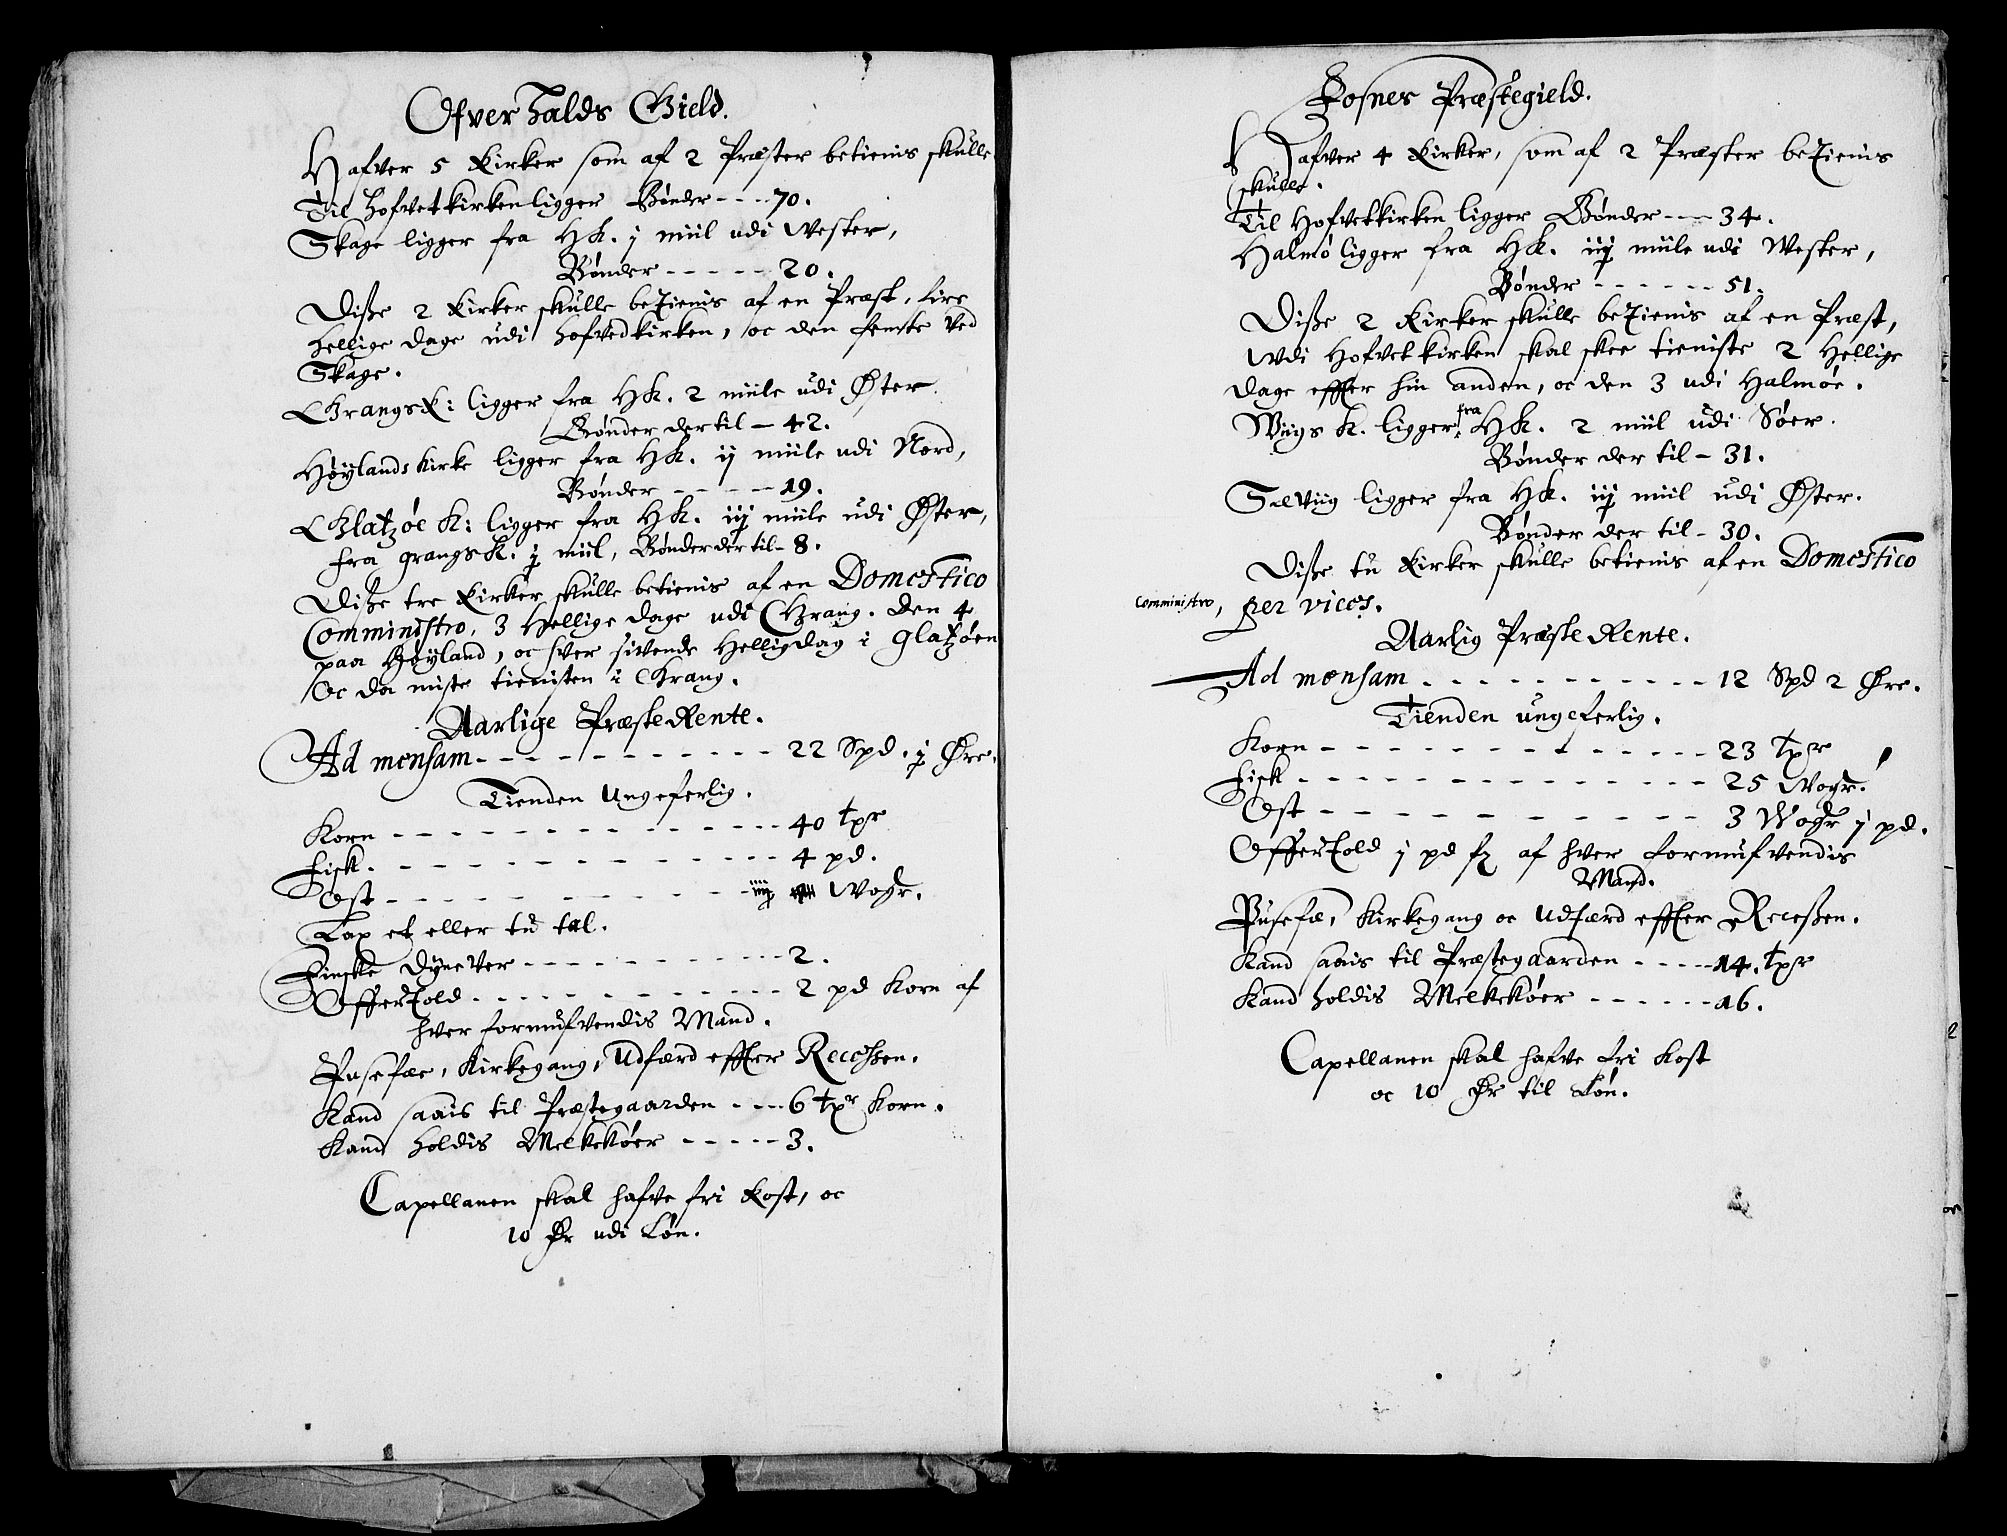 Ofverhalds Gield.
Hafver 5 Kirker som af 2 Præster betienis skulle
Til Hofvetkirken ligger Bønder - - - - 70.
Skage ligger fra HK. j miil udi Wester,
Bønder - - - - - 20.
Diße 2 Kirker skulle betienis af en Præst, fire
hellige dage udi Hofvedkirken, oc den femte ved
Skage.
Grangs K: ligger fra HK. 2 miile udi Øster.
Bønder der til - 42.
Høylands Kirke ligger fra HK. ij miile udi Nord,
Bønder - - - - - 19.
Glatzøe K: ligger fra HK. iij miile udi Øster,
fra grangs K. j miil, Bønder der til - 8.
Diße tre Kirker skulle betienis af en Domestico
Comministro, 3 Hellige dage udi Grang. Den 4
paa Høyland, oc hver sivende Helligdag i Glatzøen
Oc da miste tienisten i Grang.
Aarlige Præste Rente.
Ad mensam - - - - - - - - - - - 22 Spd. j Øre.
Tienden Ungeferlig.
Korn - - - - - - - - - - - - - - 40 tpr
Fisk. - - - - - - - - - - - - - - 4 pd.
Ost - - - - - - - - - - - - iiij Wogr.
Lax et eller tu tal.
Finske dyneVer - - - - - - - - - - - 2.
Offertold - - - - - - - - - - - - 2 pd Korn af
hver formufvendis Mand.
Pusefæe, Kirkegang, Udfærd effter Receßen.
Kand saais til Præstegaarden - - - 6 tpr Korn.
Kand holdis Melkekøer - - - - - 3.
Capellanen skal hafve fri Kost, oc
10 Dr udi Løn.
Fosnes Præstegield.
Hafver 4 Kirker, som af 2 Præster betienis
skulle.
Til Hofvetkirken ligger Bønder - - - 34.
Halmø ligger fra HK. iij miile udi Wester,
Bønder - - - - - - 51.
Diße 2 Kirker skulle betienis af en Præst,
Udi Hofvetkirken skal skee tieniste 2 Hellige
dage effter hin anden, oc den 3 udi Halmøe.
Wiigs K. ligger fra HK. 2 miil udi Søer.
Bønder der til - 31.
Sælviig ligger fra HK. iij miil udi Øster.
Bønder der til - 30.
Diße tu Kirker skulle betienis af en Domestico
Comministro, per vices.
Aarlig Præste Rente.
Ad mensam - - - - - - - - - - - 12 Spd 2 Øre.
Tienden ungeferlig.
Korn - - - - - - - - - - - - - - 23 tpr
Fisk - - - - - - - - - - - - - - 25 Wogr.
Ost - - - - - - - - - - - - - 3 Wogr j pd.
Offertold j pd af hver formufvendis
Mand.
Pusefæ, Kirkegang oc Udfærd effter Receßen.
Kand saais til Præstegaarden - - - - - 14. tpr
Kand holdis Melkekøer - - - - - - 16.
Capellanen skal hafve fri Kost
oc 10 Dr til Løn.